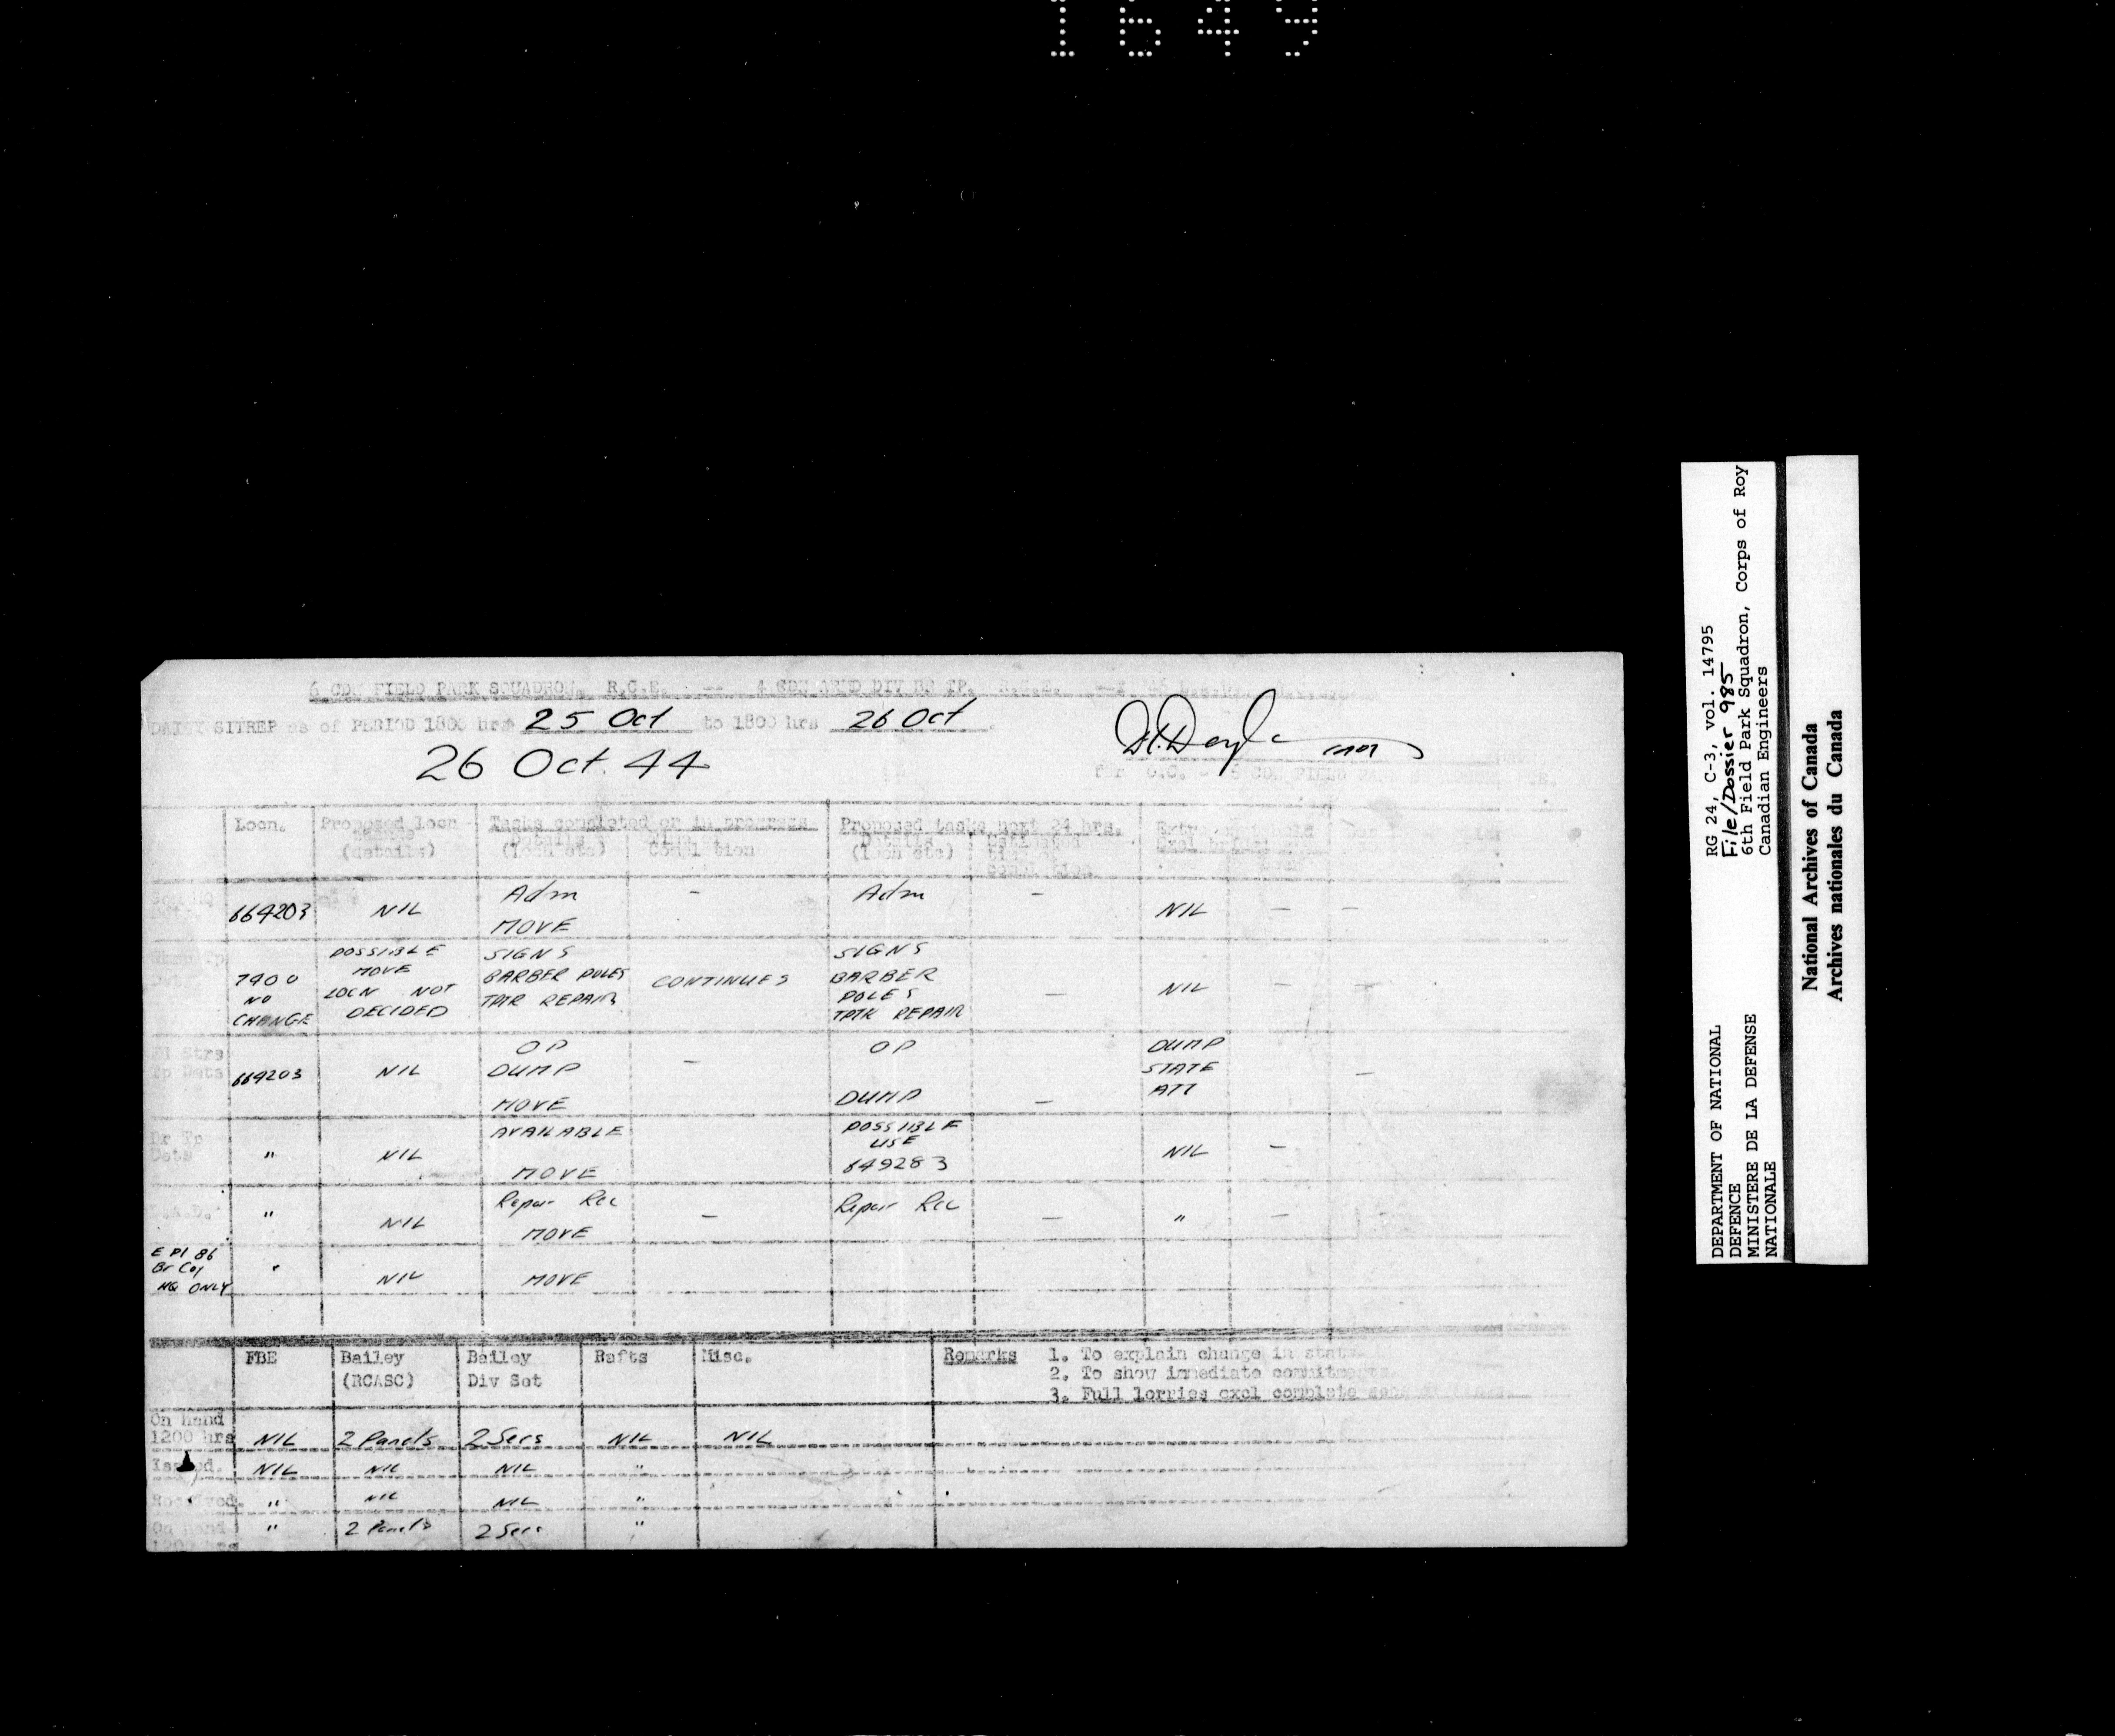 1649
6 CDN FIELD PARK SQUADRON, R.C.E. -- 4 CDN ARMD DIV BR TP. R.C.E.
DAILY SITREP as of PERIOD 1800 hrs 25 Oct to 1800 hrs 26 Oct.
26 Oct. 44
for O.C. - 6 CDN FIELD
Locn. Proposed locn Tasks completed or in progress Proposed tasks next 24 hrs.
(details) Details Details Estimated
(locn etc) (locn etc)
Adm - Adm -
669203 NIL NIL - -
MOVE
POSSIBLE SIGNS SIGNS
7900 MOVE BARBER POLES CONTINUES BARBER
NO LOCN NOT TPTR REPAIR POLES - NIL - -
CHANGE DECIDED TPTR REPAIR
Strs OP OP DUMP
Tp Dets 669203 NIL DUMP - STATE -
MOVE DUMP - ATT
Br Tp AVAILABLE POSSIBLE
Dets " NIL USE NIL -
MOVE 649283
" NIL Repair Rec - Repair Rec - " -
MOVE
E Pl 86
Br Coy " NIL MOVE
HQ ONLY
FBE Bailey Bailey Rafts Misc. Remarks 1. To explain change in state
(RCASC) Div Set 2. To show immediate commitments
3. Full lorries excl complete
On Hand
1200 hrs NIL 2 Panels 2 Secs NIL NIL
Issued. NIL NIL NIL "
Received. " NIL NIL "
On Hand " 2 Panels 2 Secs "
1200 hrs
RG 24, C-3, vol. 14795
File/Dossier 985
6th Field Park Squadron, Corps of Roy
Canadian Engineers
DEPARTMENT OF NATIONAL
DEFENCE
MINISTERE DE LA DEFENSE
NATIONALE
National Archives of Canada
Archives nationales du Canada